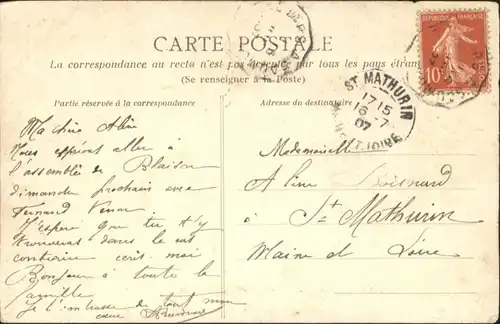 CARTE POSTALE
La correspondance au recto n'est pas acceptée par tous les pays étran
(Se renseigner à la Poste)
REPUBLIQUE FRANÇAISE
10
ST MATHURIN
17 15
16 - 7
07
Partie réservée à la correspondance
Adresse du destinataire
Ma chère Aline
Nous espérons aller à
l'assemblée de Blaison
dimanche prochain avec
Fernand
J'espère que tu t'y
trouveras dans le cas
contraire écris-moi
Bonjour à toute la
famille
Je t'embrasse de tout mon
cœur
Mademoiselle
Aline Boisnard
à St Mathurin
Maine et Loire